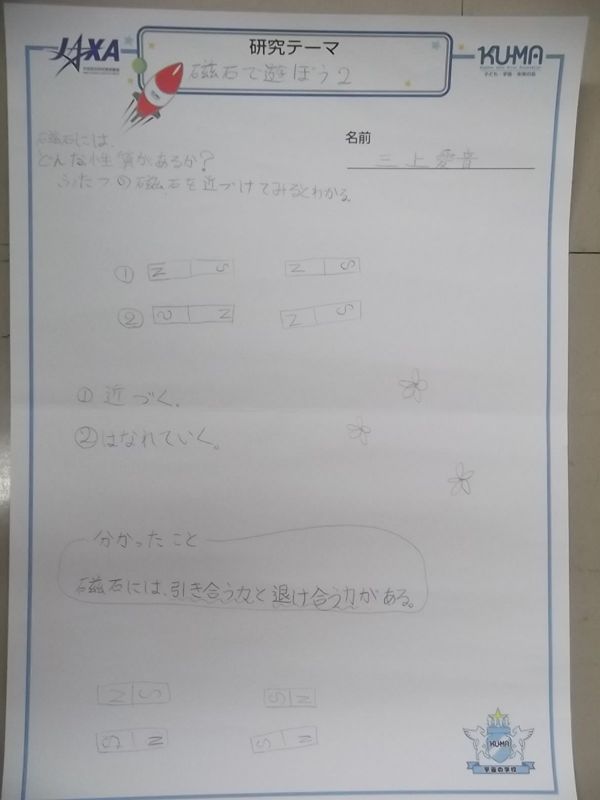 JAXA
研究テーマ
KU-MA
子ども・宇宙・未来の会
磁石で遊ぼう2
磁石には、
どんな性質があるか?
ふたつの磁石を近づけてみるとわかる
名前
三上愛音
① N S N S
② S N N S
① 近づく.
② はなれていく。
分かったこと
磁石には、引き合う力と退け合う力がある。
N S S N
S N S N
KU-MA
宇宙の学校